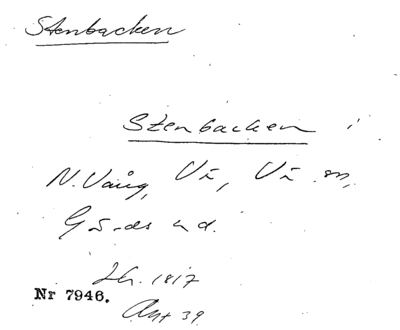 Stenbacken
Stenbacken i
N. Vång, Vä, Vä sn,
Gärds hd.
Lh. 1817
Nr 7946.
Akt 39